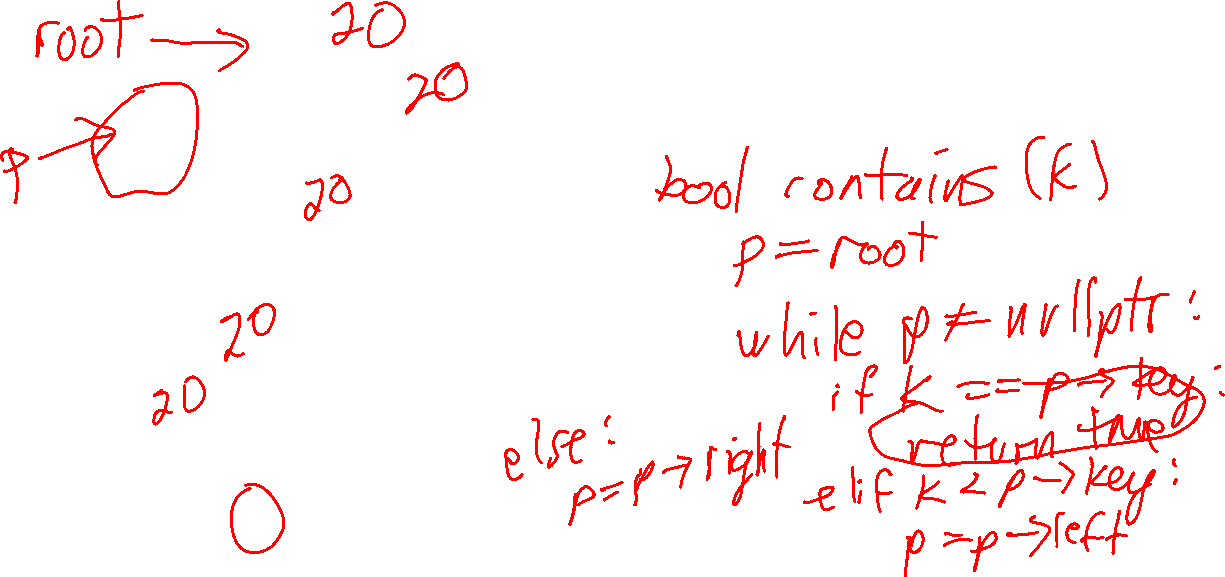 root → 20
20
p →
20
20
20
bool contains (k)
p = root
while p ≠ nullptr:
if k == p→key:
return true
elif k < p→key:
p = p→left
else:
p = p→right